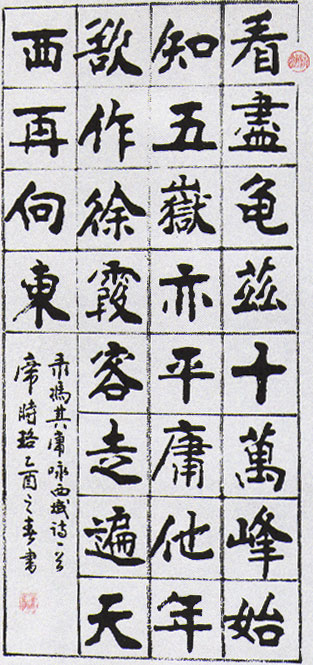 看盡龟茲十萬峰始
知五嶽亦平庸他年
欲作徐霞客走遍天
西再向東
录馮其庸咏西域诗一首
時 乙酉之春書